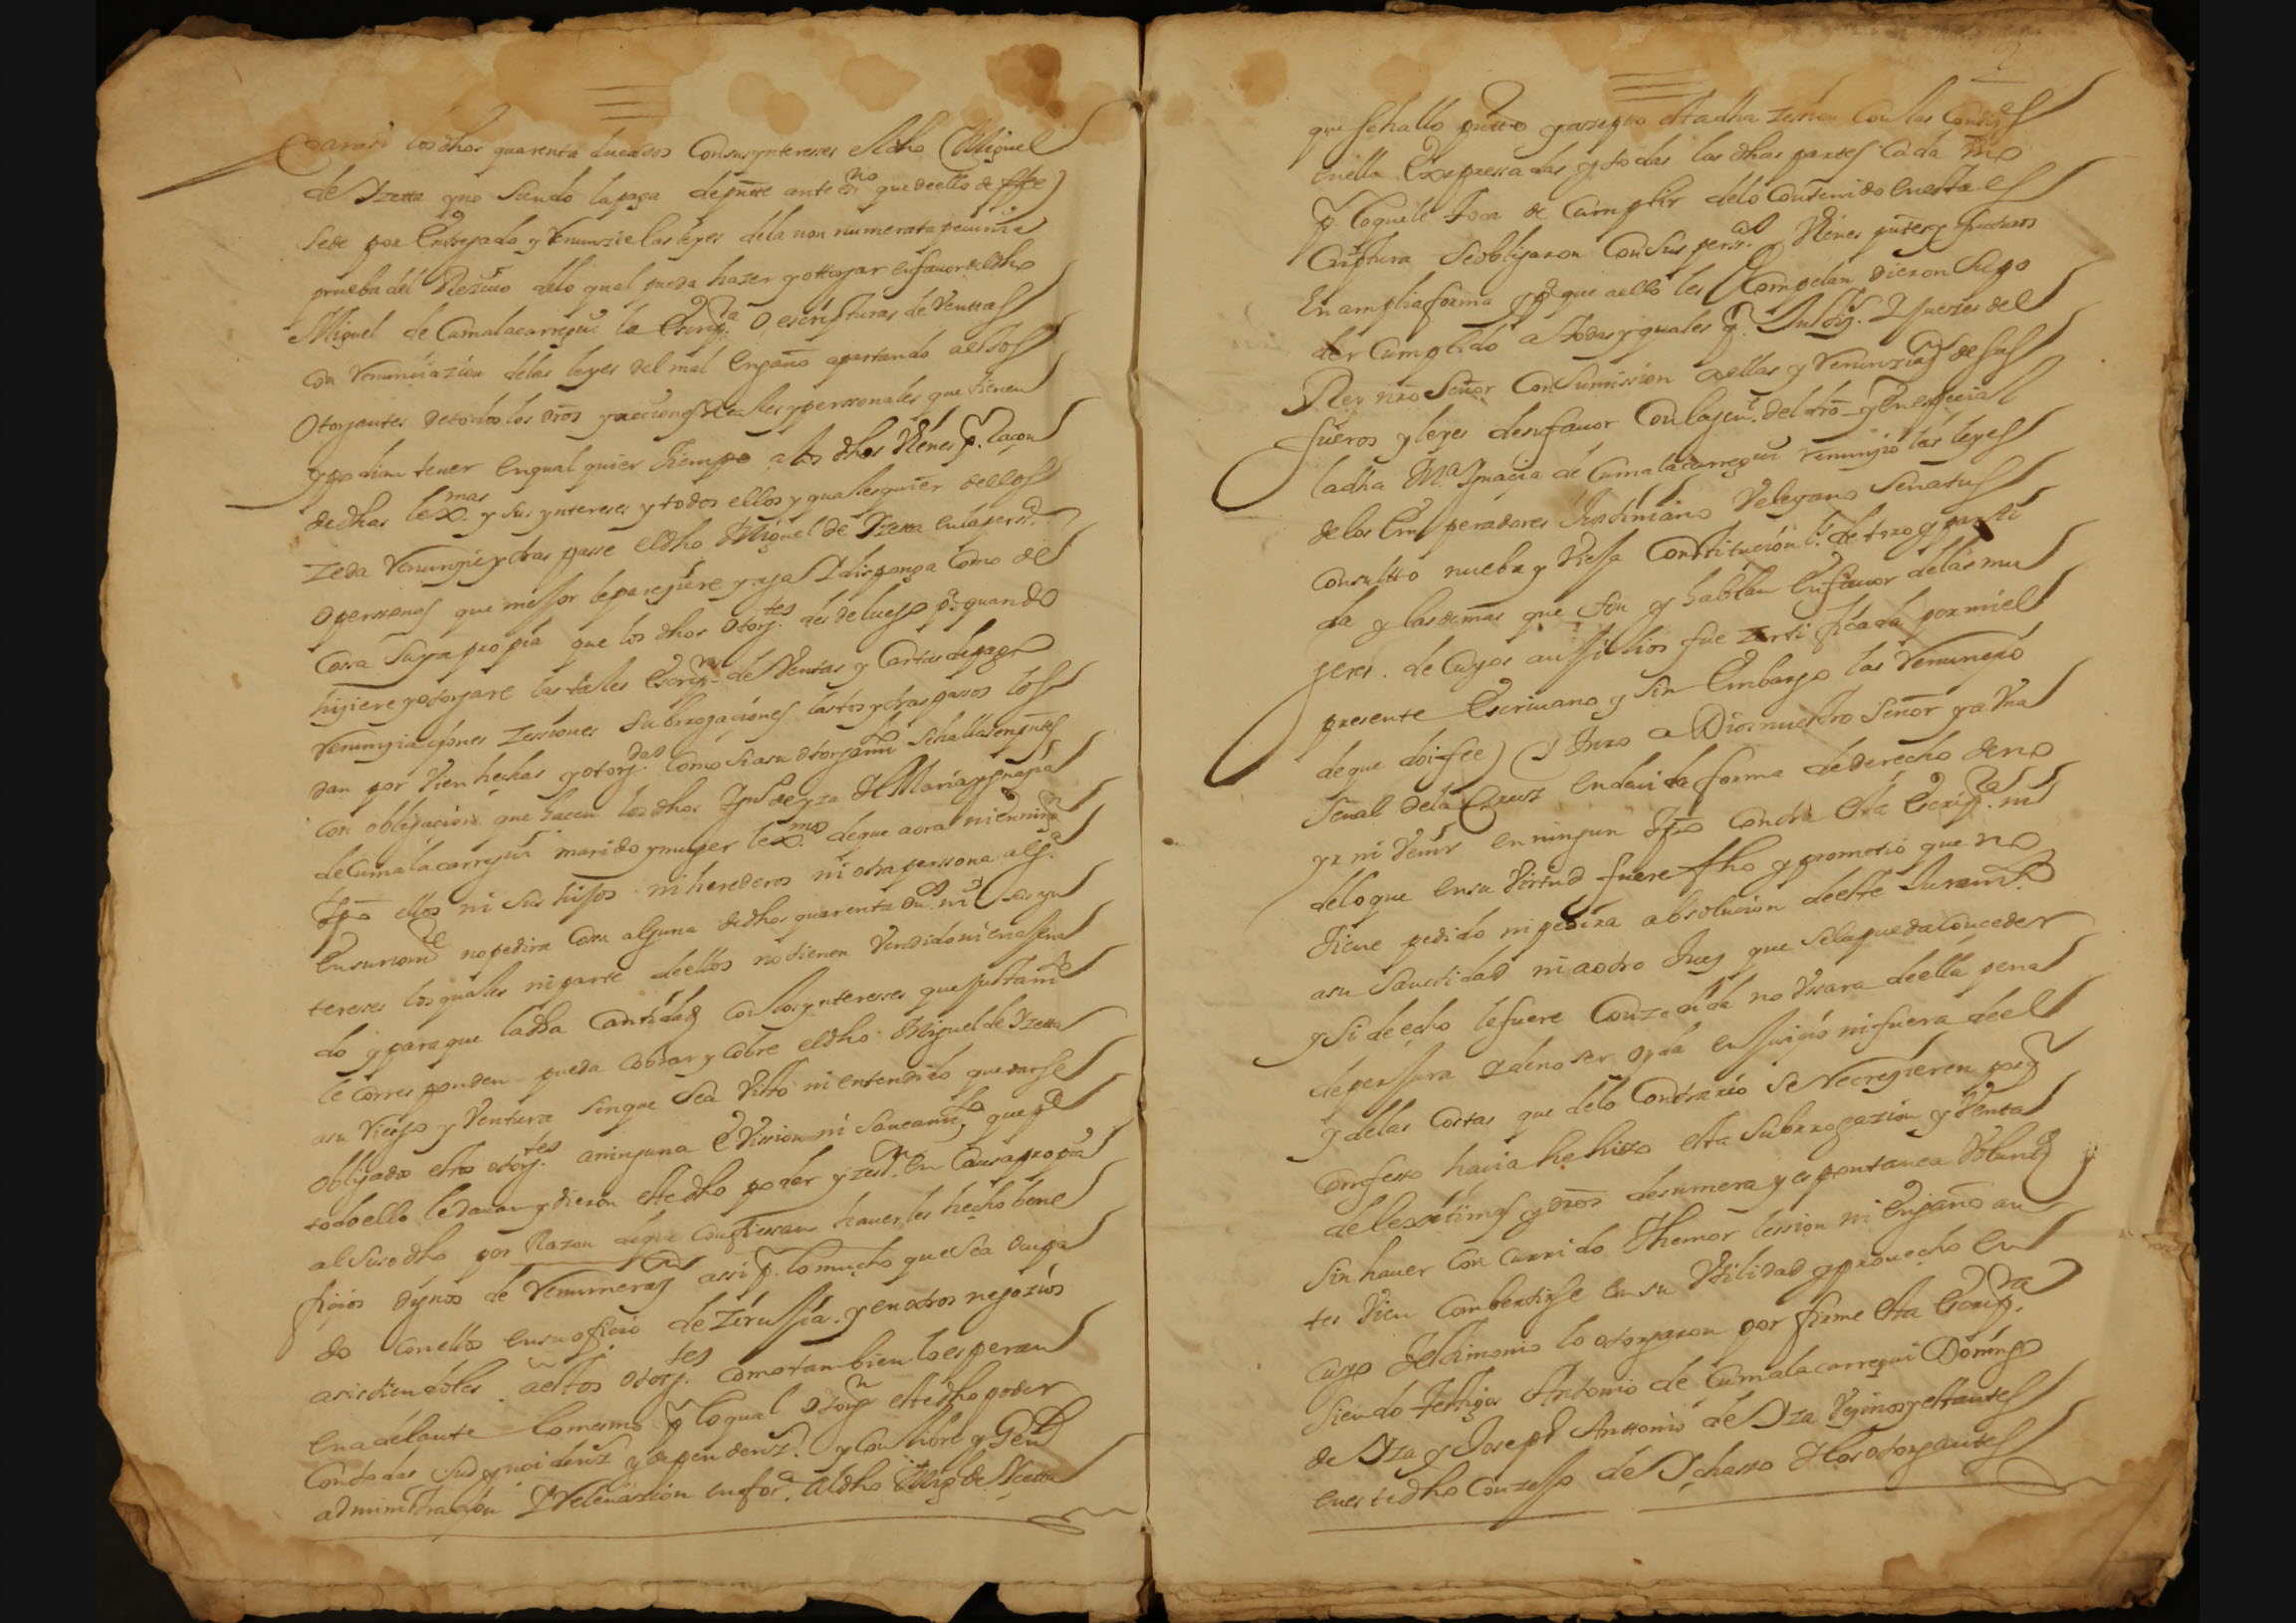 para si los dhos quarenta ducados Consus yntereses el dho Miguel
de Yzetta y no siendo la paga de pnte ante esno que de ello de ffee)
se de por entregado y Renunzie las leyes dela non numerata pecunia
prueba del Reciuo delo qual pueda hazer y ottorgar en fauor del dho
Miguel de Cumalacarregui la escrip.ra o, escripturas de Venttas
con Renunciazion delas leyes del mal engaño apartando aestos
Otorgantes de todos los dros y acciones Reales y perssonales que tienen
y podian tener en qual quier tiempo alos dhos Vienes p.r Raçon
de dhas lex.mas y sus yntereses y todos ellos y quales quier dellos
zeda Renunçie y tras passe el dho Miguel de Yzetta en la perss.a
o perssonas que mejor le pareziere y aga y disponga Como de
Cossa suya propia que los dhos Otorg.tes desde luego p.a quando
hiziere y otorgare las tales escrip.ras de Ventas y Cartas de pago
Renunziaçiones zessiones subrrogaçiones lastos y traspassos los
dan por Vien hechas y otorg.das como si a su otorgam.to se hallasen pntes
Con obligacion que hacen los dhos Jph de yza y Maria ygnaçia
de Cumalacarregui marido y muger lex.mos de que aora ni en ning.n
tpo ellos ni sus hijos ni herederos ni otra perssona alg.a
en su nom.e no pedira Cosa alguna de dhos quarenta du.s ni sus yn
tereses los quales ni parte de ellos no tienen Vendido ni enagena
do y para que la dha Cantidad con los yntereses que justam.te
le corresponden pueda cobrar y cobre el dho Miguel de Yzetta
a su Riesgo y Ventura sin que sea Visto ni entendido quedarse
obligados estos otorg.tes a ninguna eVission ni saneam.to que p.a
todo ello le dauan y dieron este dho poder y zess.n en Causa propia
al suso dho por Razon de que confiessan hauerles hecho bene
ficios dignos de Renumeraz.on assi p.r lo mucho que se a ocupa
do con ellos en su oficio de Zirujia, y en otros negozios
asistiendoles aestos otorg.tes como tan bien lo esperan
en adelante lo mesmo p.r lo qual otorg.n este dho poder
Con todas sus ynzidenz.s y dependenz.s y con libre y Gen.l
administracion y Releuazion en for.a al dho Mig.l de Yzetta
que se hallo pnte y azepto esta dha zession con las Condi.es
en ella expressadas y todas las dhas partes cada Vno
p.r lo que le toca de Cumplir delo Contenido en esta es
Criptura se obligaron Con sus perss.as y Vienes pntes y futuros
en amplia forma y p.a que aello les Compelan dieron su po
der Cumplido a todas y quales q.r Justiz.s y Juezes del
Rey nro Señor Con sumission aellas y Renunziaz.on de sus
fueros y leyes de su fauor Con la gen.l del dro y en especial
la dha M.a Ygnaçia de Cumalacarregui Renunçio las leyes
delos emperadores Justiniano Velejano Senatus
Consultto nueba y Vieja Constitucion l.s de toro y parti
da y las demas que son y hablan en fauor delas mu
jeres. de Cuyos auxilios fue zertificada por mi el
presente escriuano y sin embargo las Renunçio
de que doi fee) y Juro a Dios nuestro Señor y a Vna
Señal dela Cruz en deuida forma de derecho de no
yr ni Venir en ningun tpo Contra esta escrip.ra ni
delo que en su Virtud fuere fho y prometio que no
tiene pedido ni pedira absolucion deeste Juram.to
a su Santidad ni aotro Juez que se la pueda conceder
y si de echo le fuere Conzedida no Vssara de ella pena
de perjura y de no ser oyda en juiçio ni fuera de el
y delas Costas que delo Contrario se Recreçieren por q.e
Confesso hauia he hizo esta subrrogazion y Venta
de lexitimas y dros de su mera y espontanea Volunt.d
sin hauer Concurrido themor lession ni engaño an
tes Vien combertirse en su Vtilidad y prouecho en
cuyo testimonio lo otorgaron por firme esta escrip.ra
siendo testigos Antonio de Cumalacarregui Domingo
de Yza y Joseph Anttonio de Yza Vezinos y estantes
en este dho Conzejo de Ychasso y los otorgantes